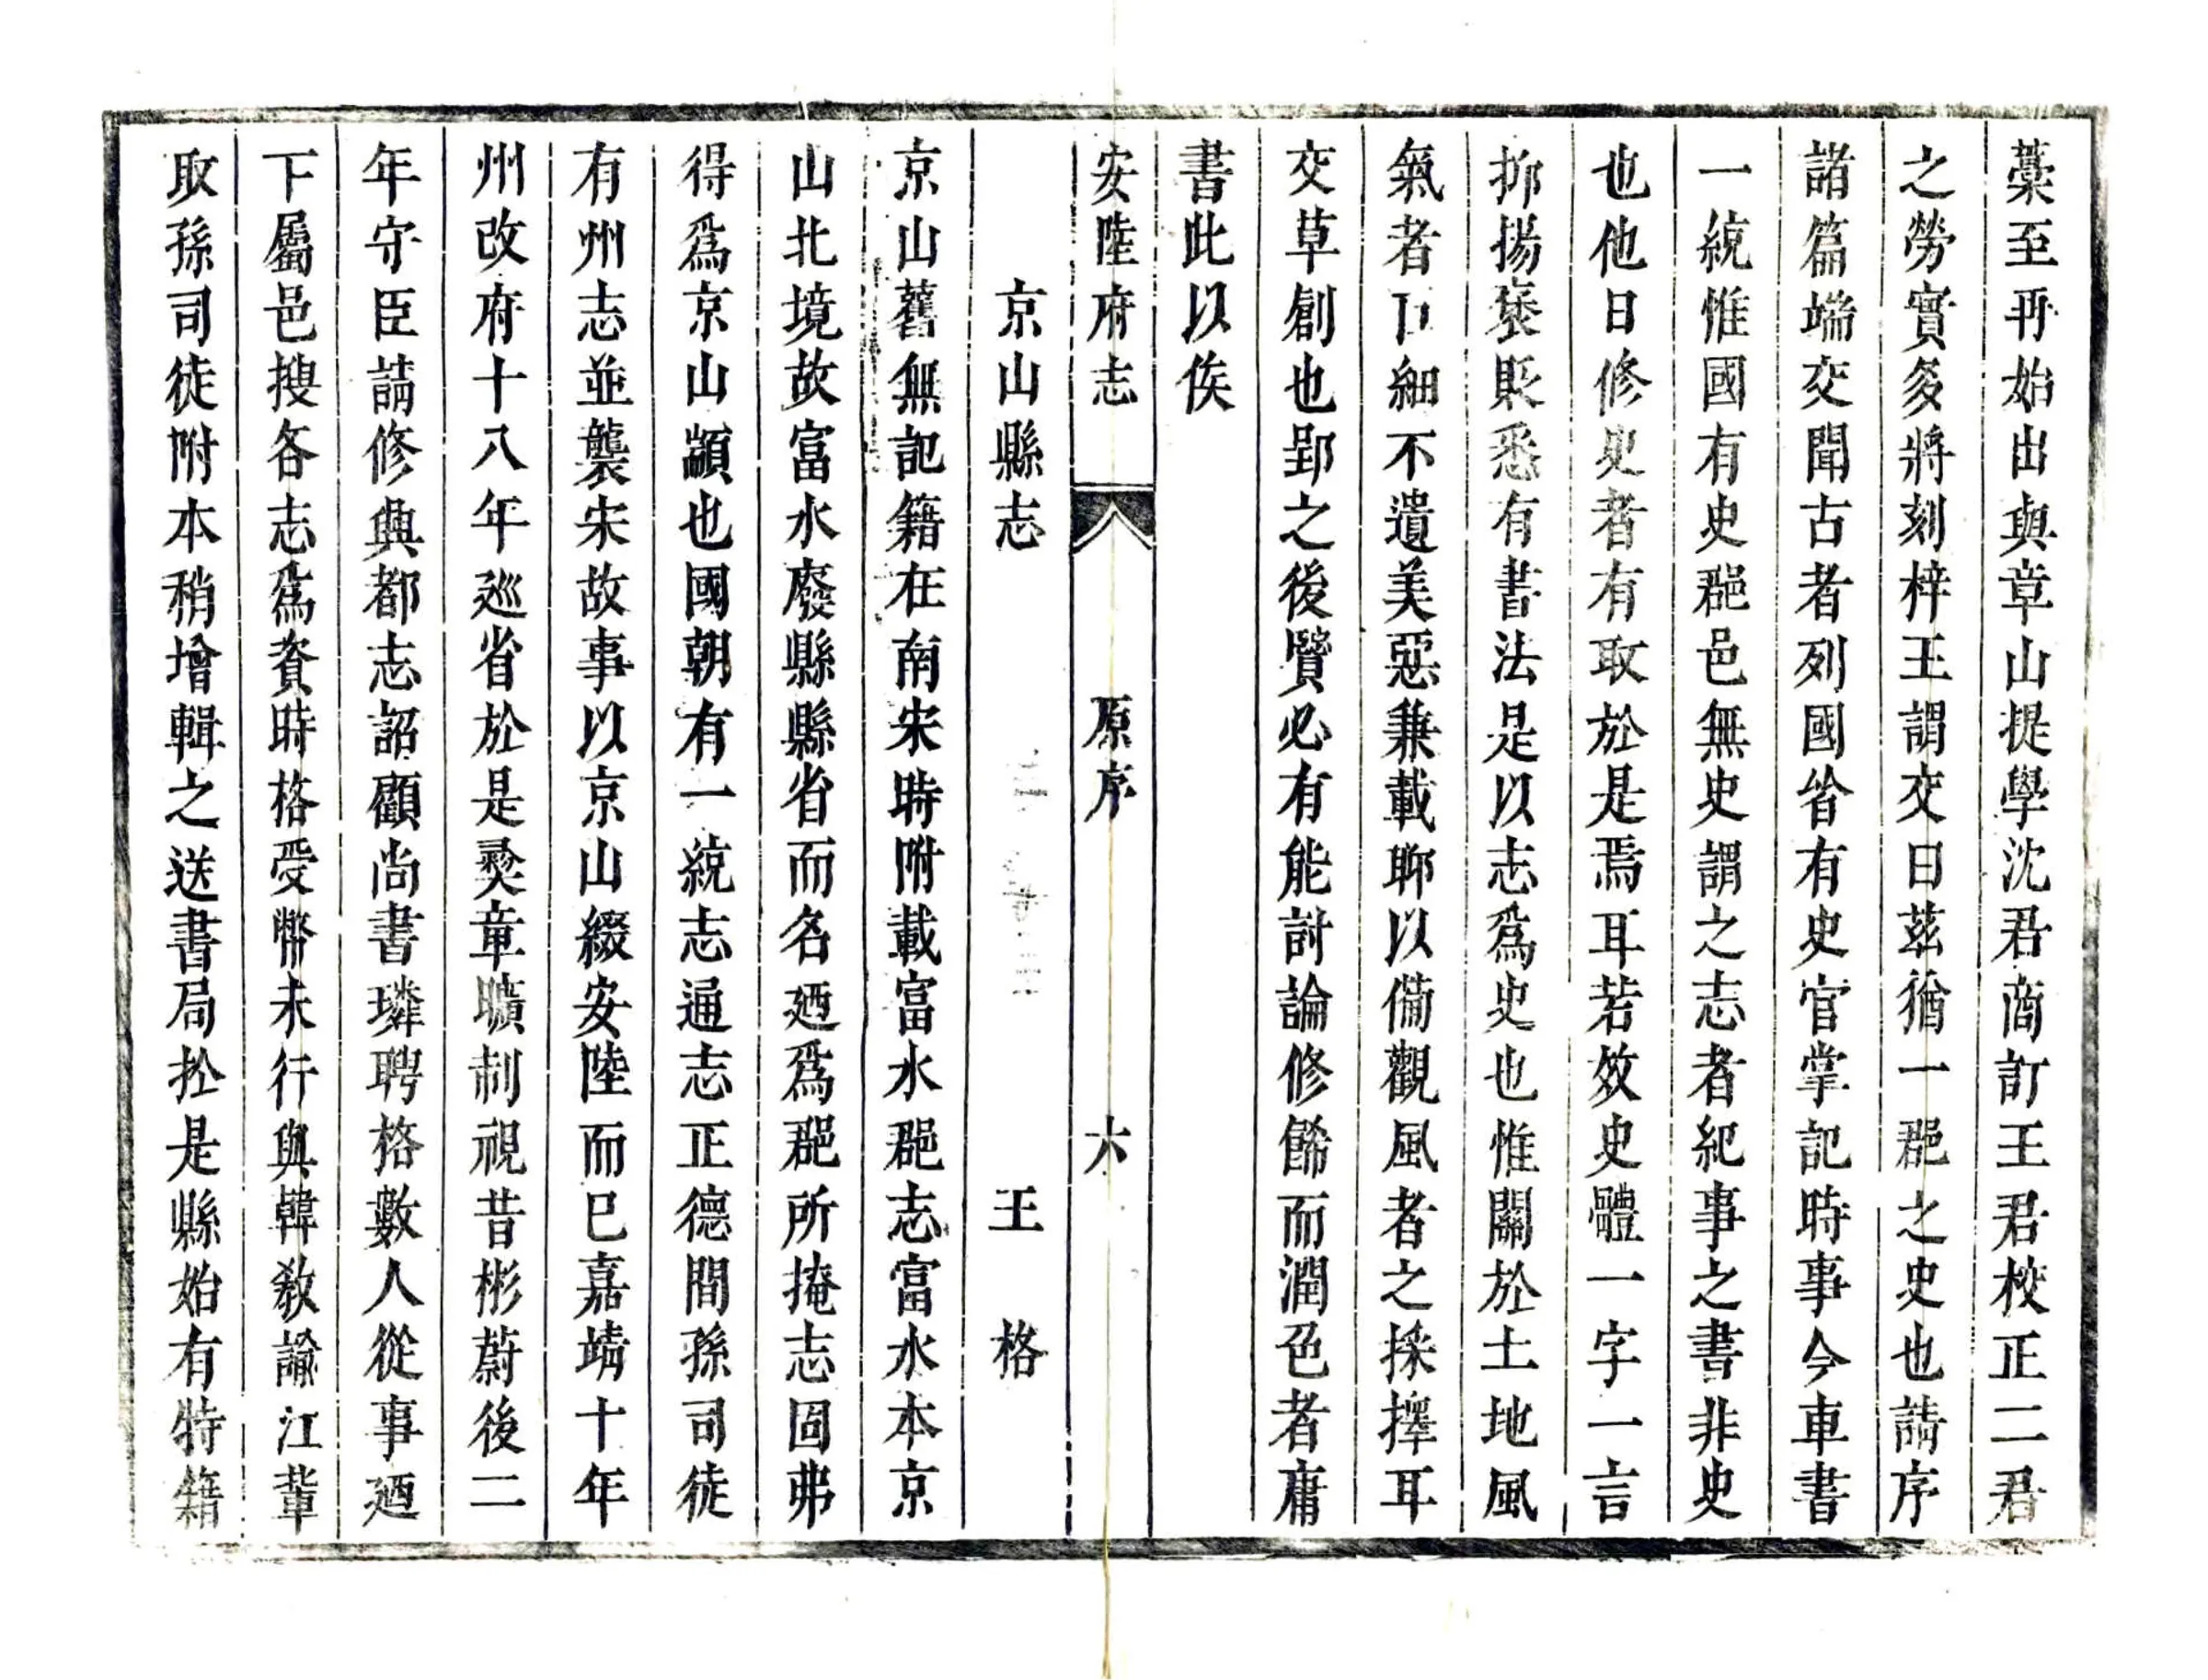 藁至再始出與章山提學沈君商訂王君校正二君
之勞實多將刻梓王謂交曰茲猶一郡之史也請序
諸篇端交聞古者列國省有史官掌記時事今車書
一統惟國有史郡邑無史謂之志者紀事之書非史
也他日修史者有取於是焉耳若效史體一字一言
抑揚褒貶悉有書法是以志爲史也惟關於土地風
氣者巨細不遺美惡兼載聊以備觀風者之採擇耳
交草創也郢之後賢必有能討論修餙而潤色者庸
書此以俟
安陸府志 原序 六
京山縣志 王格
京山舊無記籍在南宋時附載富水郡志富水本京
山北境故富水廢縣縣省而名廼爲郡所掩志固弗
得爲京山顓也國朝有一統志通志正德間孫司徒
有州志並襲宋故事以京山綴安陸而已嘉靖十年
州改府十八年巡省於是奐章曠制視昔彬蔚後二
年守臣請修興都志詔顧尚書璘聘格數人從事廼
下屬邑搜各志爲資時格受幣未行與韓教諭江輩
取孫司徒附本稍增輯之送書局扵是縣始有特籍